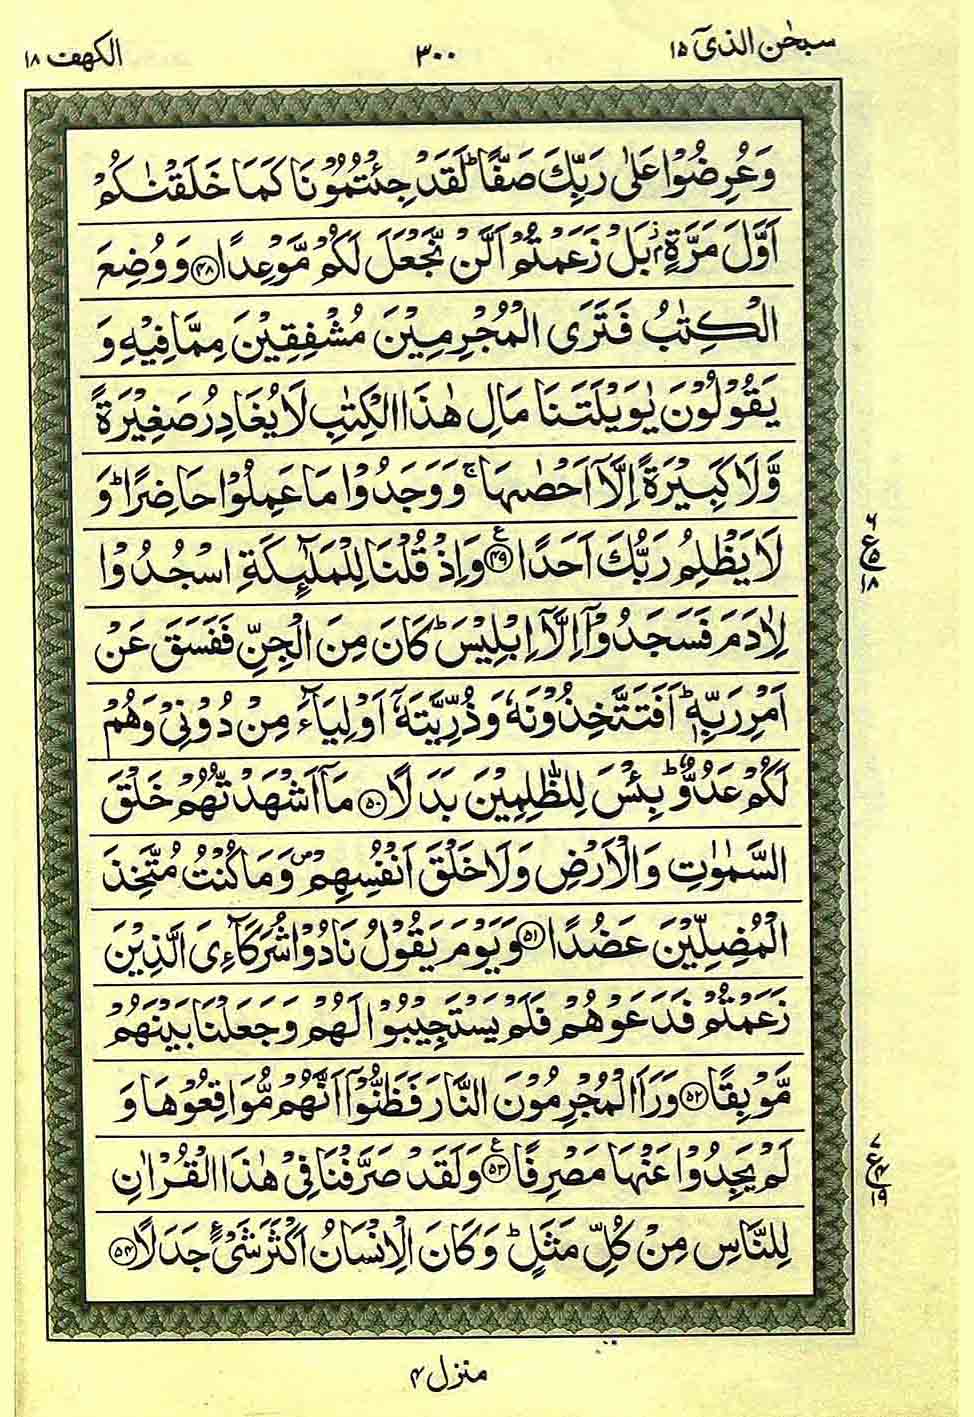 سبحٰن الذیٓ ۱۵
۳۰۰
الکهف ۱۸
وَعُرِضُوْا عَلٰى رَبِّكَ صَفًّا ؕ لَقَدْ جِئْتُمُوْنَا كَمَا خَلَقْنٰكُمْ
اَوَّلَ مَرَّةٍ ۫ بَلْ زَعَمْتُمْ اَلَّنْ نَّجْعَلَ لَكُمْ مَّوْعِدًا ﴿۴۸﴾ وَوُضِعَ
الْكِتٰبُ فَتَرَى الْمُجْرِمِيْنَ مُشْفِقِيْنَ مِمَّا فِيْهِ وَ
يَقُوْلُوْنَ يٰوَيْلَتَنَا مَالِ هٰذَا الْكِتٰبِ لَا يُغَادِرُ صَغِيْرَةً
وَّلَا كَبِيْرَةً اِلَّاۤ اَحْصٰىهَا ۚ وَوَجَدُوْا مَا عَمِلُوْا حَاضِرًا ؕ وَ
لَا يَظْلِمُ رَبُّكَ اَحَدًا ﴿۴۹﴾ وَاِذْ قُلْنَا لِلْمَلٰٓئِكَةِ اسْجُدُوْا
لِاٰدَمَ فَسَجَدُوْۤا اِلَّاۤ اِبْلِيْسَ ؕ كَانَ مِنَ الْجِنِّ فَفَسَقَ عَنْ
اَمْرِ رَبِّهٖ ؕ اَفَتَتَّخِذُوْنَهٗ وَذُرِّيَّتَهٗۤ اَوْلِيَآءَ مِنْ دُوْنِيْ وَهُمْ
لَكُمْ عَدُوٌّ ؕ بِئْسَ لِلظّٰلِمِيْنَ بَدَلًا ﴿۵۰﴾ مَاۤ اَشْهَدْتُّهُمْ خَلْقَ
السَّمٰوٰتِ وَالْاَرْضِ وَلَا خَلْقَ اَنْفُسِهِمْ ۪ وَمَا كُنْتُ مُتَّخِذَ
الْمُضِلِّيْنَ عَضُدًا ﴿۵۱﴾ وَيَوْمَ يَقُوْلُ نَادُوْا شُرَكَآءِيَ الَّذِيْنَ
زَعَمْتُمْ فَدَعَوْهُمْ فَلَمْ يَسْتَجِيْبُوْا لَهُمْ وَجَعَلْنَا بَيْنَهُمْ
مَّوْبِقًا ﴿۵۲﴾ وَرَاَ الْمُجْرِمُوْنَ النَّارَ فَظَنُّوْۤا اَنَّهُمْ مُّوَاقِعُوْهَا وَ
لَمْ يَجِدُوْا عَنْهَا مَصْرِفًا ﴿۵۳﴾ وَلَقَدْ صَرَّفْنَا فِيْ هٰذَا الْقُرْاٰنِ
لِلنَّاسِ مِنْ كُلِّ مَثَلٍ ؕ وَكَانَ الْاِنْسَانُ اَكْثَرَ شَيْءٍ جَدَلًا ﴿۵۴﴾
۶
ع ۵
۱۸
۷
ع ۴
۱۹
منزل ۴